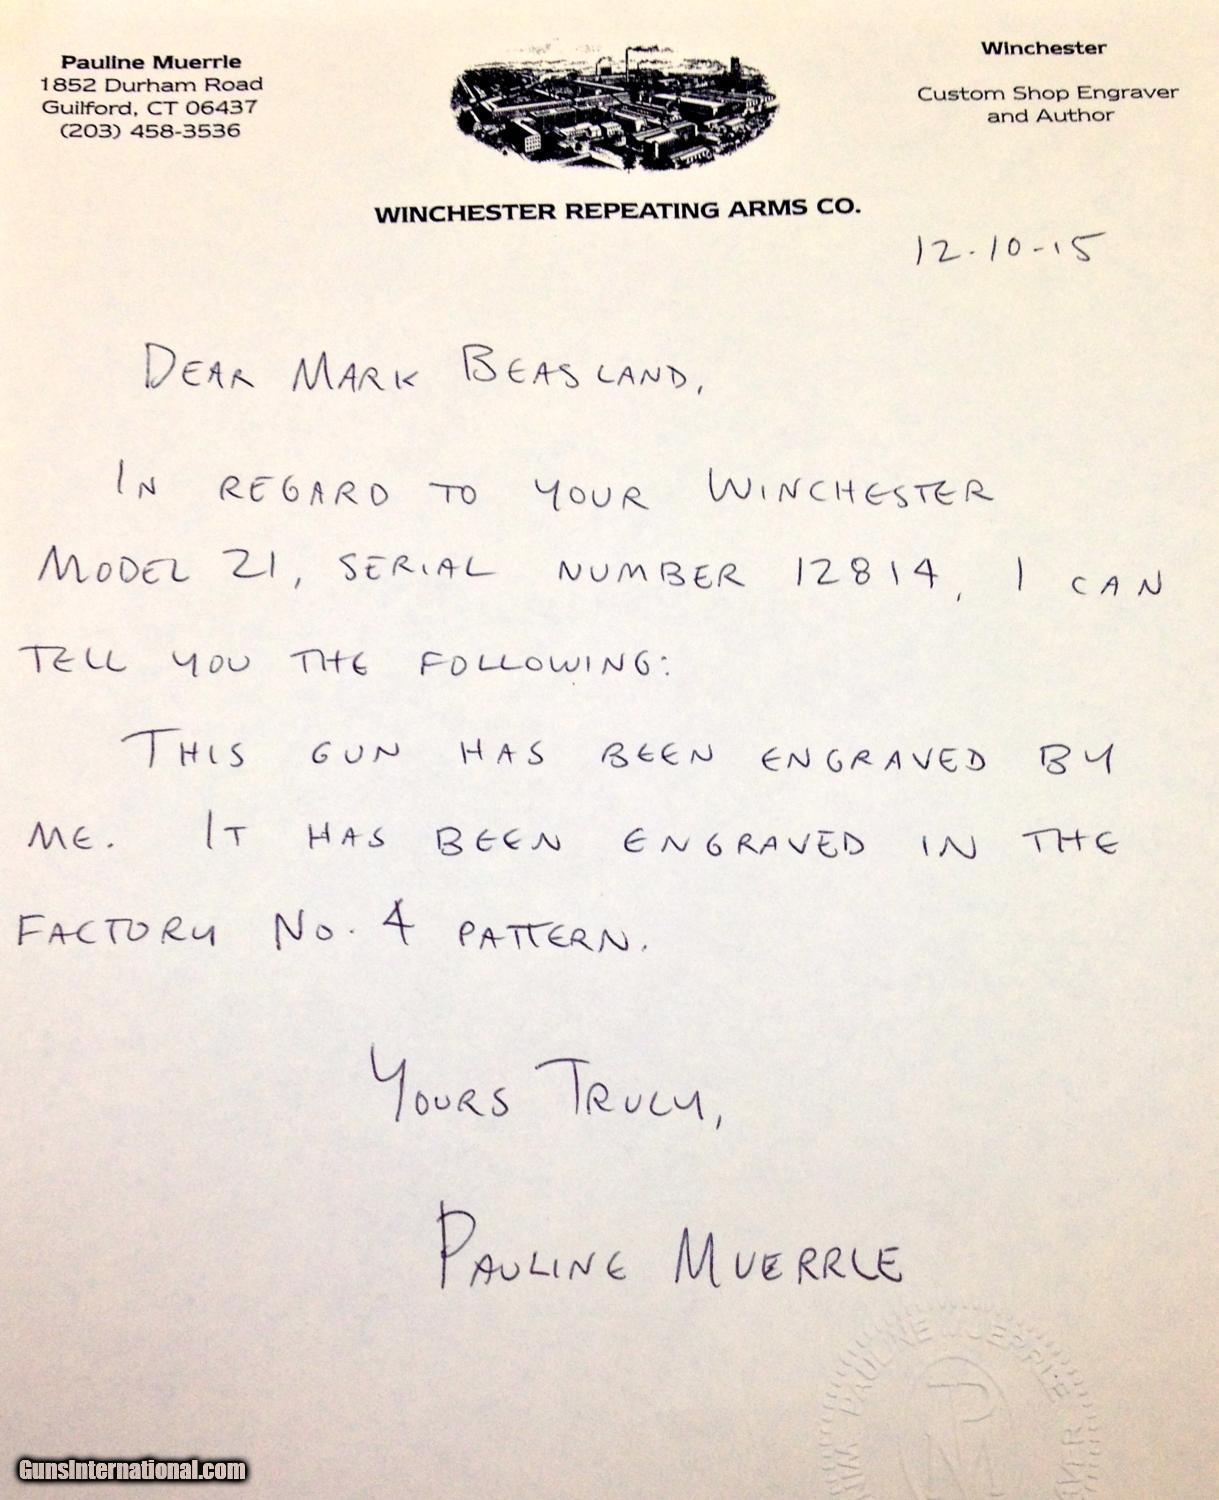 Pauline Muerrle
1852 Durham Road
Guilford, CT 06437
(203) 458-3536
WINCHESTER REPEATING ARMS CO.
Winchester
Custom Shop Engraver
and Author
12-10-15
DEAR MARK BEASLAND,
IN REGARD TO YOUR WINCHESTER
MODEL 21, SERIAL NUMBER 12814, I CAN
TELL YOU THE FOLLOWING:
THIS GUN HAS BEEN ENGRAVED BY
ME. IT HAS BEEN ENGRAVED IN THE
FACTORY NO. 4 PATTERN.
YOURS TRULY,
PAULINE MUERRLE
PAULINE MUERRLE
PM
GunsInternational.com